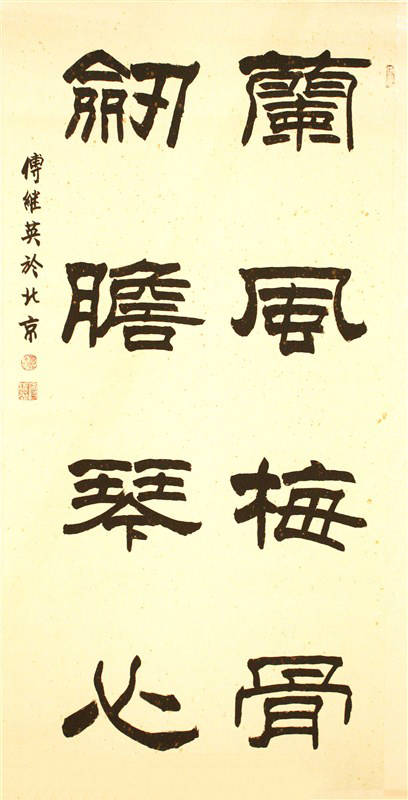 蘭風梅骨
劒膽琴心
傅继英於北京